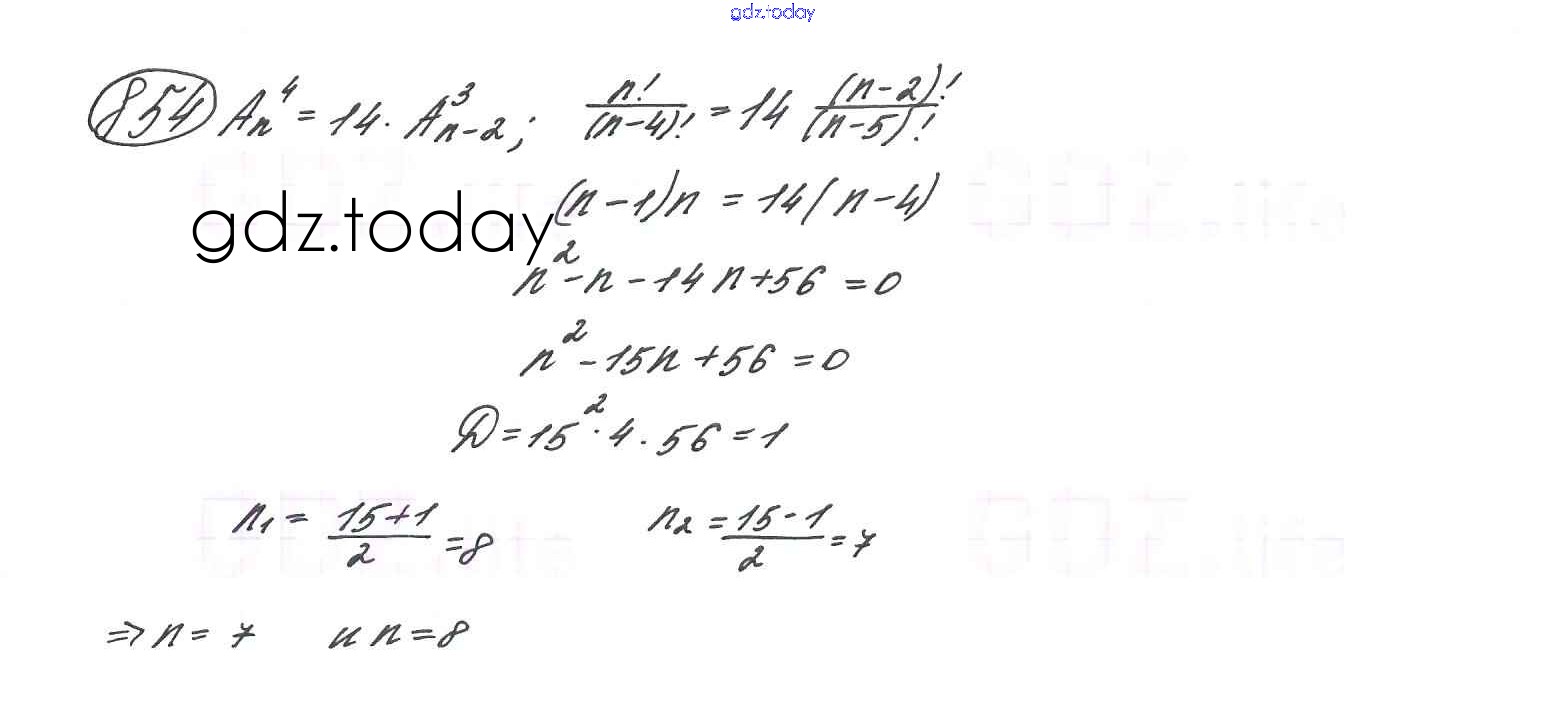 gdz.today
854 Aₙ⁴ = 14 · Aₙ₋₂³ ; n!/(n-4)! = 14 (n-2)!/(n-5)!
(n-1)n = 14(n-4)
gdz.today
n² - n - 14n + 56 = 0
n² - 15n + 56 = 0
D = 15² · 4 · 56 = 1
n₁ = (15+1)/2 = 8 n₂ = (15-1)/2 = 7
⇒ n = 7 и n = 8